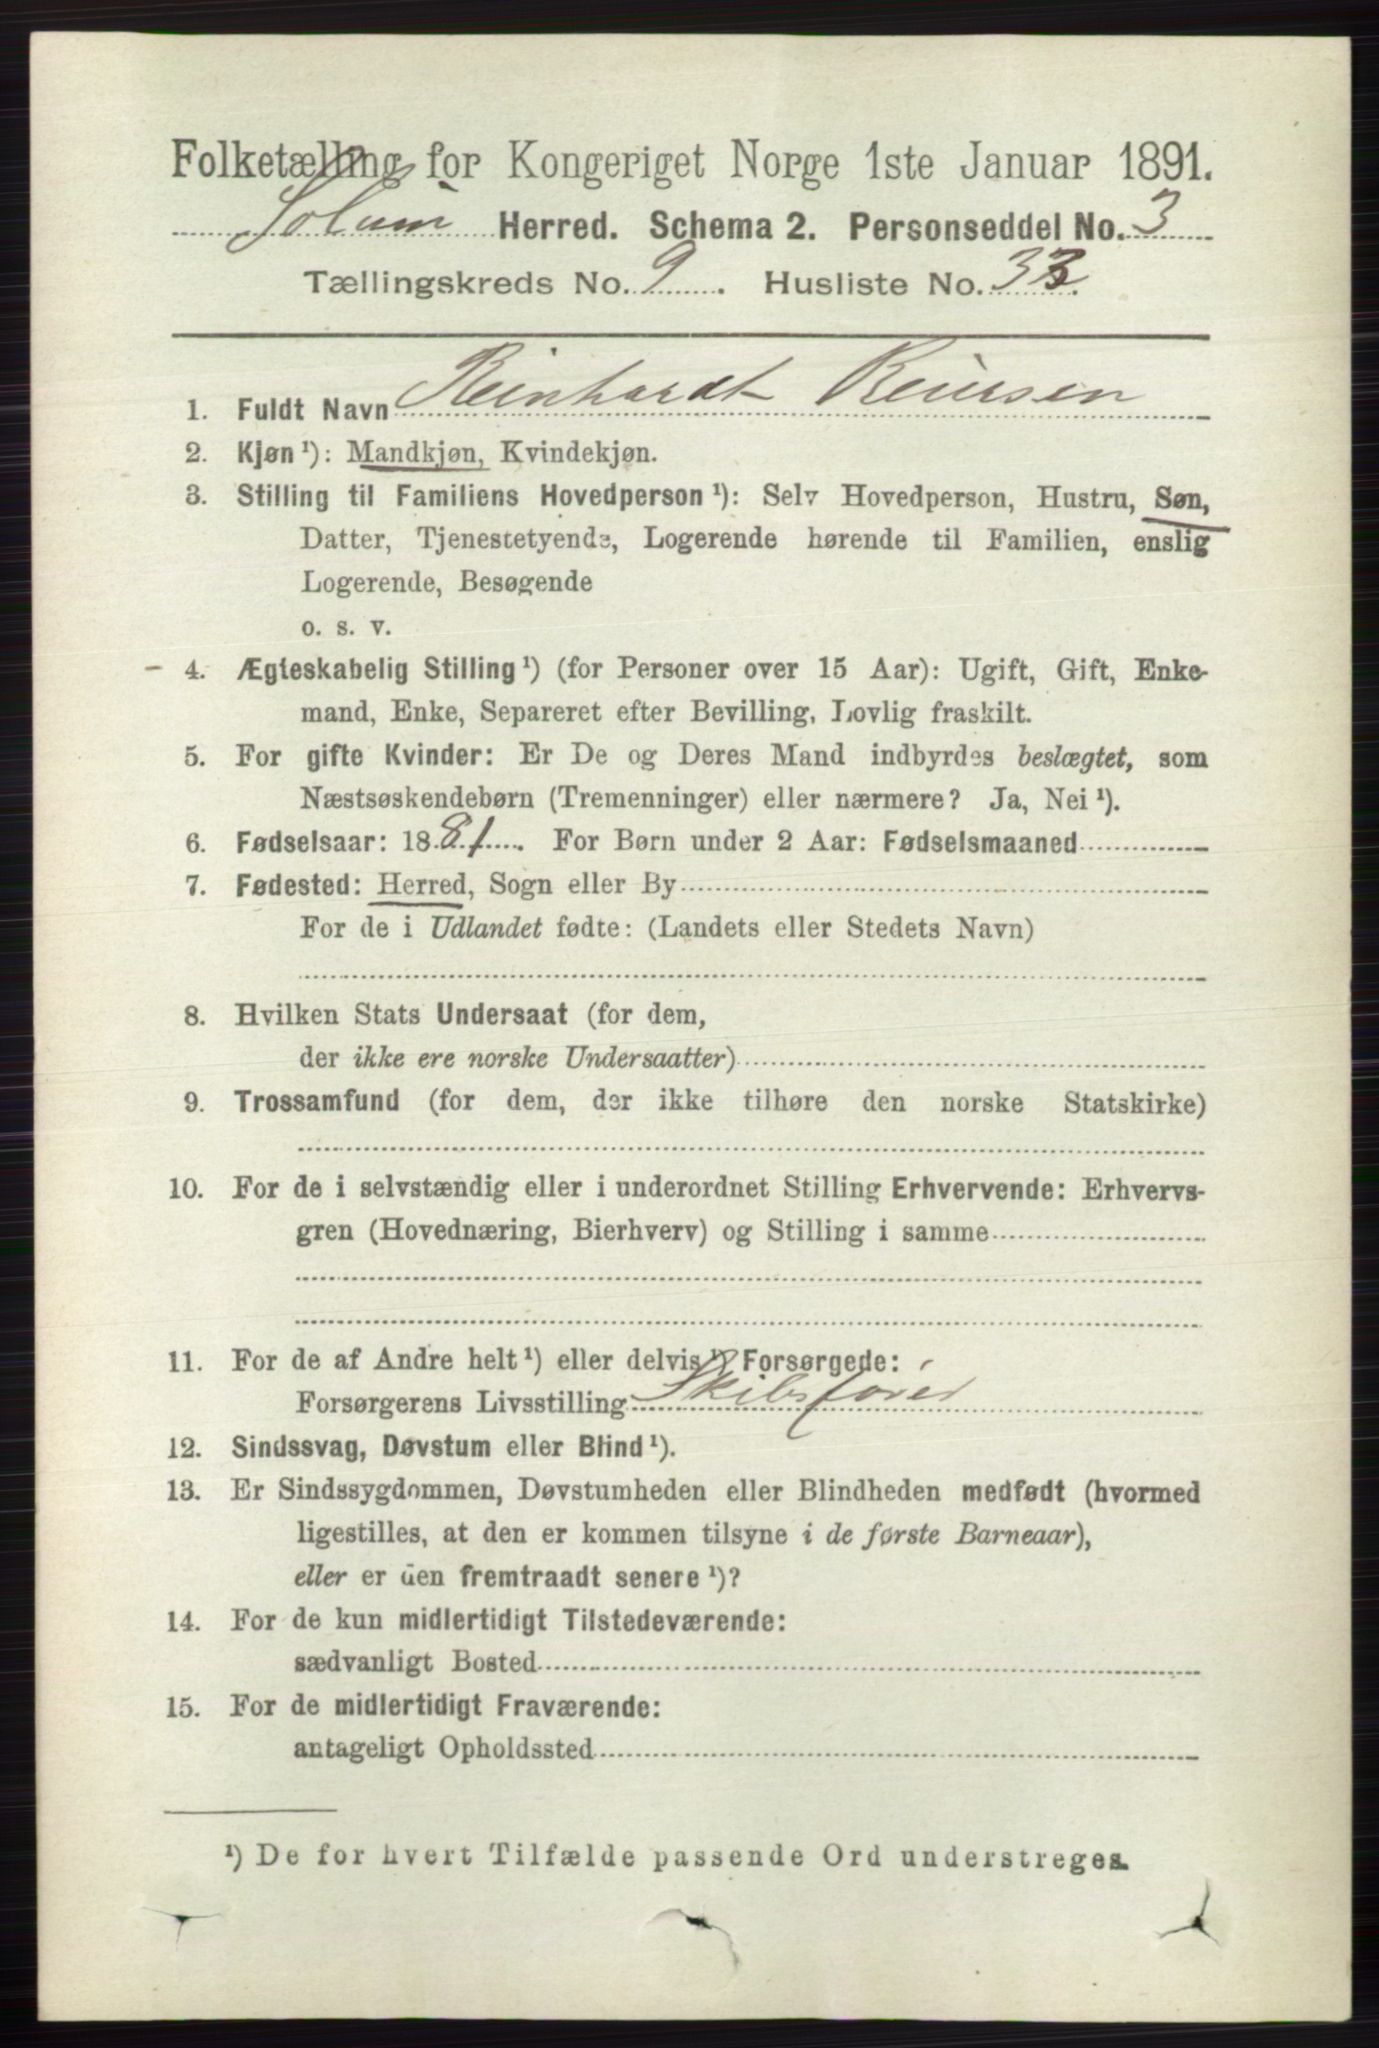 Folketælling for Kongeriget Norge 1ste Januar 1891.
Solum Herred. Schema 2. Personseddel No. 3
Tællingskreds No. 9. Husliste No. 33.
1. Fuldt Navn Reinhardt Reiersen
2. Kjøn ¹): Mandkjøn, Kvindekjøn.
3. Stilling til Familiens Hovedperson ¹): Selv Hovedperson, Hustru, Søn,
Datter, Tjenestetyende, Logerende hørende til Familien, enslig
Logerende, Besøgende
o. s. v.
4. Ægteskabelig Stilling ¹) (for Personer over 15 Aar): Ugift, Gift, Enke-
mand, Enke, Separeret efter Bevilling, Lovlig fraskilt.
5. For gifte Kvinder: Er De og Deres Mand indbyrdes beslægtet, som
Næstsøskendebørn (Tremenninger) eller nærmere? Ja, Nei ¹).
6. Fødselsaar: 1881. For Børn under 2 Aar: Fødselsmaaned
7. Fødested: Herred, Sogn eller By
For de i Udlandet fødte: (Landets eller Stedets Navn)
8. Hvilken Stats Undersaat (for dem,
der ikke ere norske Undersaatter)
9. Trossamfund (for dem, der ikke tilhøre den norske Statskirke)
10. For de i selvstændig eller i underordnet Stilling Erhvervende: Erhvervs-
gren (Hovednæring, Bierhverv) og Stilling i samme
11. For de af Andre helt ¹) eller delvis ¹) Forsørgede:
Forsørgerens Livsstilling Skibsfører
12. Sindssvag, Døvstum eller Blind ¹).
13. Er Sindssygdommen, Døvstumheden eller Blindheden medfødt (hvormed
ligestilles, at den er kommen tilsyne i de første Barneaar),
eller er den fremtraadt senere ¹)?
14. For de kun midlertidigt Tilstedeværende:
sædvanligt Bosted
15. For de midlertidigt Fraværende:
antageligt Opholdssted
¹) De for hvert Tilfælde passende Ord understreges.